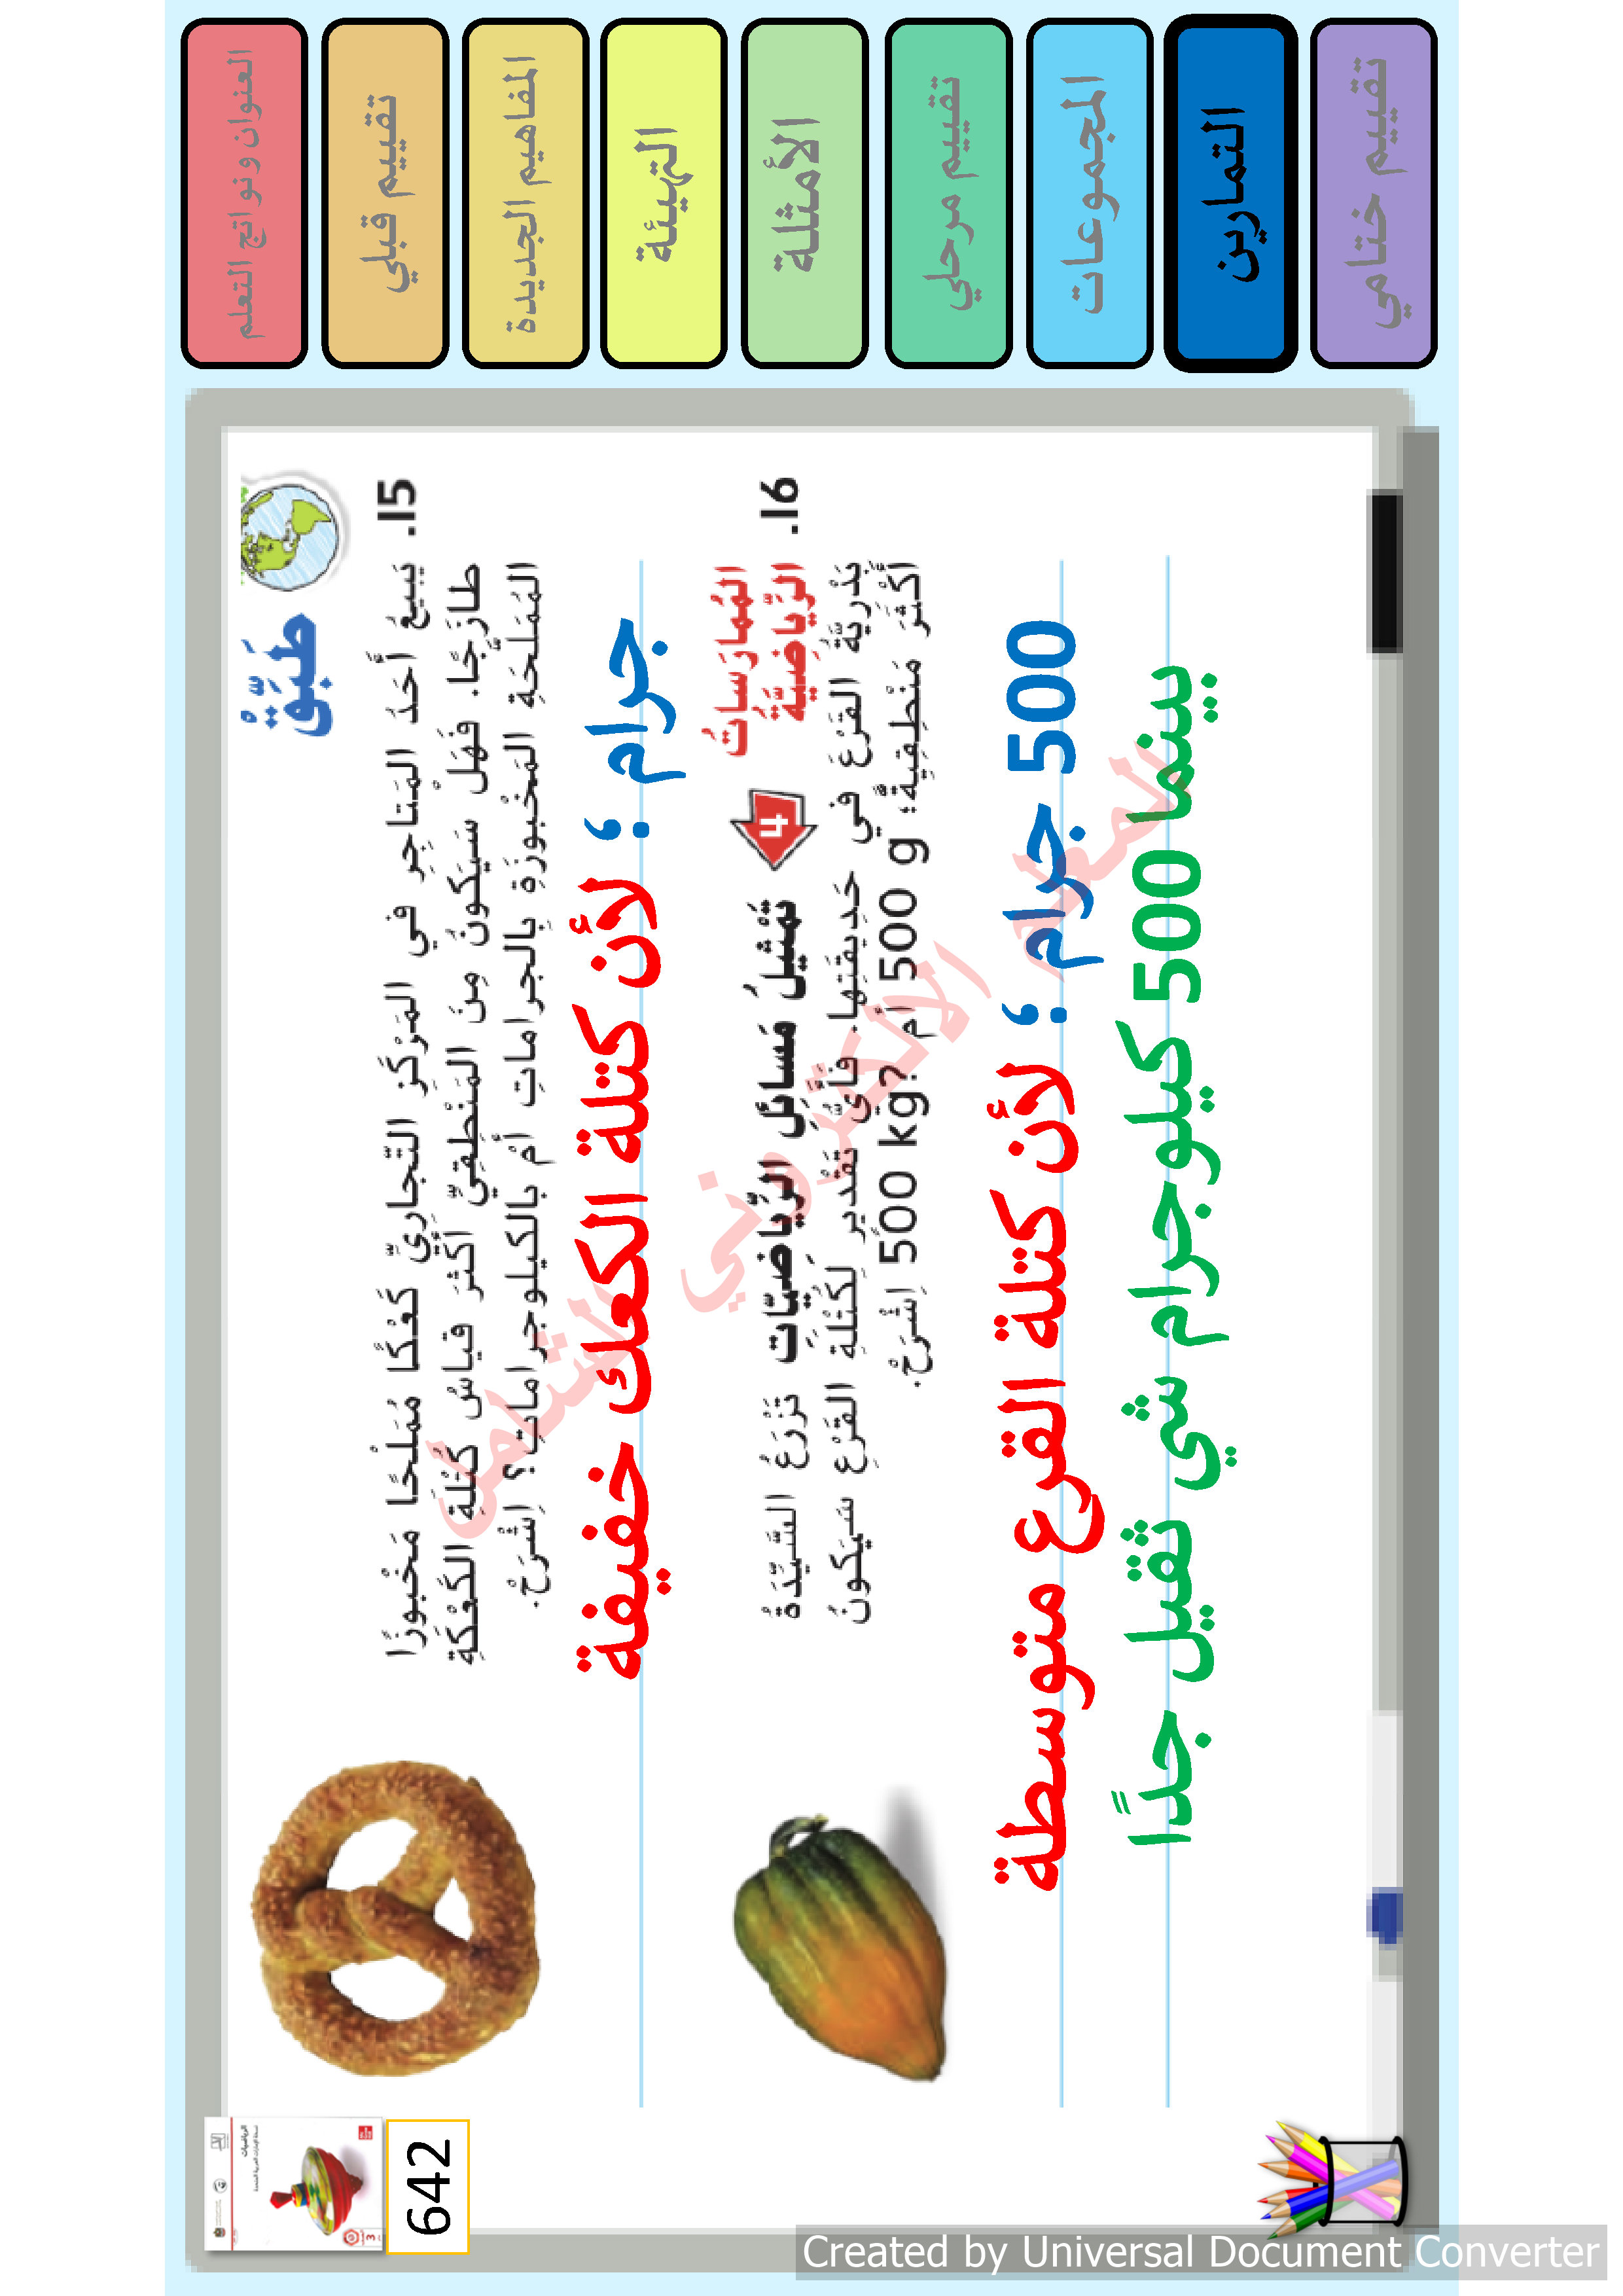 العنوان ونواتج التعلم
تقييم قبلي
المفاهيم الجديدة
التهيئة
الأمثلة
تقييم مرحلي
المجموعات
التمارين
تقييم ختامي
طَبِّقْ
15. يَبيعُ أَحَدُ المَتاجِرِ في المَرْكَزِ التِّجاريِّ كَعْكًا مُمَلَّحًا مَخْبوزًا
طازَجًا. فَهَلْ سَيَكونُ مِنَ المَنْطِقيِّ أَكْثَرَ قياسُ كُتْلَةِ الكَعْكَةِ
المُمَلَّحَةِ المَخْبوزَةِ بِالجراماتِ أَمْ بِالكيلوجراماتِ؟ اِشْرَحْ.
جرام ؛ لأن كتلة الكعك خفيفة
16. المُمارَساتُ
الرِّياضِيَّةُ
4 تَمْثيلُ مَسائِلِ الرِّياضِيّاتِ تَزْرَعُ السَّيِّدَةُ
بَدْرِيَّةُ القَرْعَ في حَديقَتِها. فَأَيُّ تَقْديرٍ لِكُتْلَةِ القَرْعِ سَيَكونُ
أَكْثَرَ مَنْطِقِيَّةً؛ 500 g أم 500 kg? اِشْرَحْ.
500 جرام ؛ لأن كتلة القرع متوسطة
بينما 500 كيلوجرام شي ثقيل جدًا
المعلم الالكتروني الشامل
642
الرياضيات
3
Created by Universal Document Converter